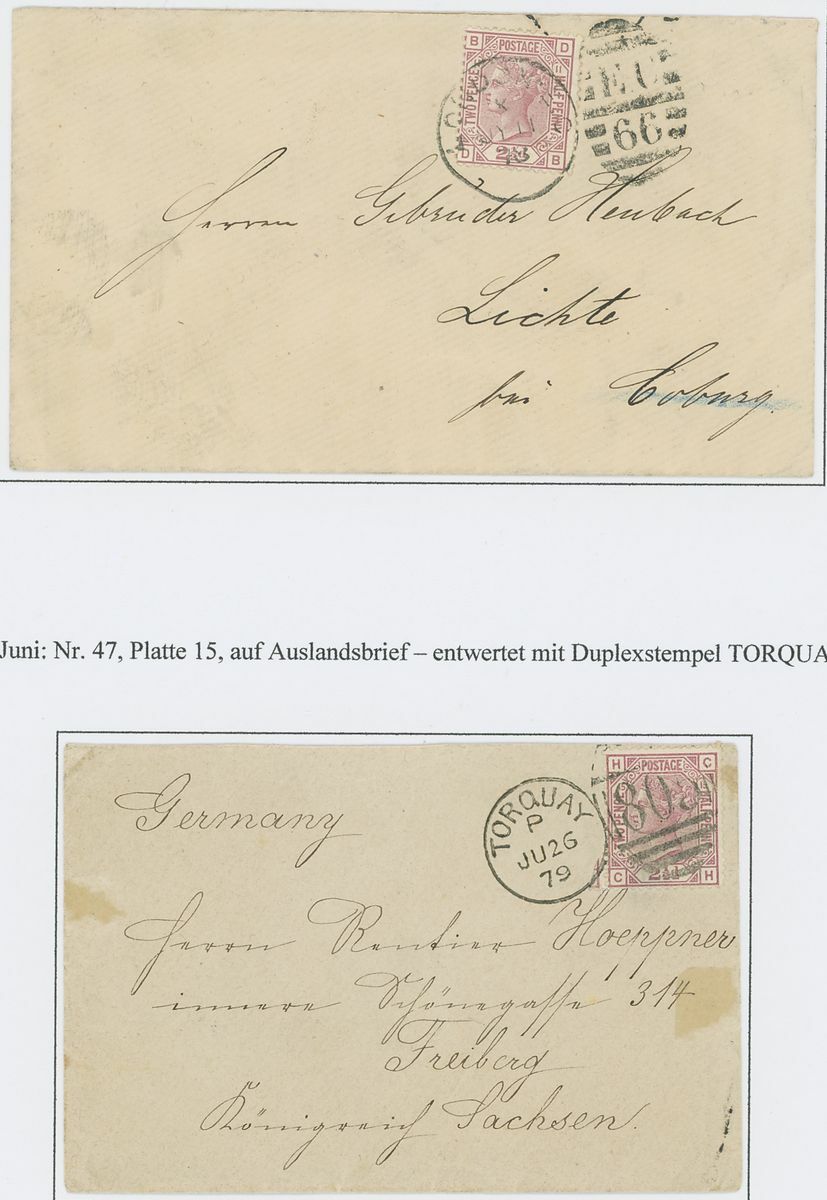 B POSTAGE D
TWO PENCE
HALF PENNY
11
D 2½ B
EC
66
Herren Gebruder Heubach
Lichte
bei Coburg.
Juni: Nr. 47, Platte 15, auf Auslandsbrief – entwertet mit Duplexstempel TORQUA
Germany
TORQUAY
P
JU 26
79
H POSTAGE C
TWO PENCE
805
C 2½ H
Herrn Rentier Hoeppner
innere Schönegasse 314
Freiberg
Königreich Sachsen.